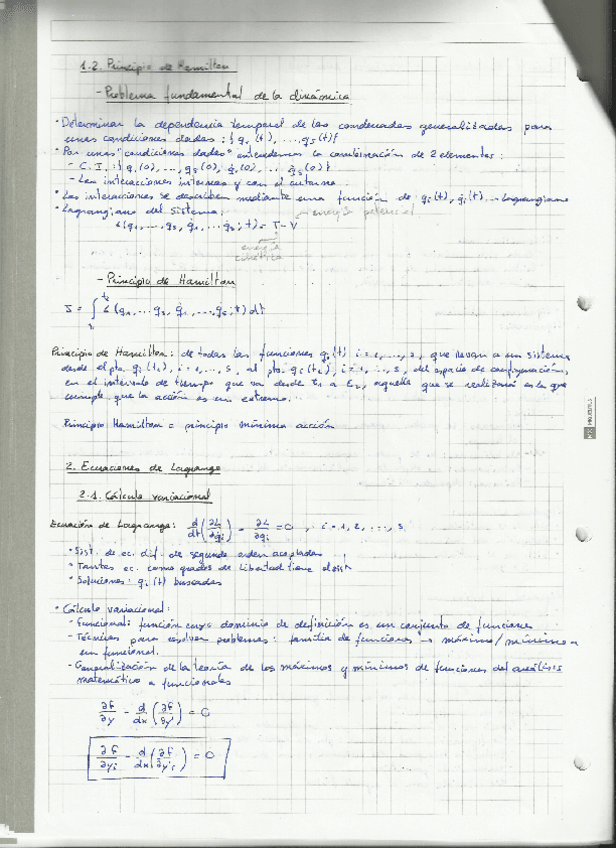 1.2. Principio de Hamilton
- Problema fundamental de la dinámica
• Determinar la dependencia temporal de las coordenadas generalizadas para
unas condiciones dadas: {q₁(t), ..., qs(t)}
• Por unas "condiciones dadas" entendemos la combinación de 2 elementos:
- C.I.: {q₁(0), ..., qs(0), q̇₁(0), ... q̇s(0)}
- Las interacciones internas y con el entorno
• Las interacciones se describen mediante una función de qi(t), q̇i(t) → Lagrangiano
• Lagrangiano del sistema:
energía potencial
L(q₁, ... qs, q̇₁, ... q̇s; t) = T - V
energía
cinética
- Principio de Hamilton
S = ∫ L(q₁, ... qs, q̇₁, ..., q̇s; t) dt
Principio de Hamilton: de todas las funciones qi(t) i = 1, ..., s, que llevan a un sistema
desde el pto. qi(t₁), i = 1, ..., s, al pto. qi(t₂), i = 1, ..., s, del espacio de configuración,
en el intervalo de tiempo que va desde t₁ a t₂, aquella que se realizará es la que
cumple que la acción es un extremo.
Principio Hamilton = principio mínima acción
2. Ecuaciones de Lagrange
2.1. Cálculo variacional
Ecuación de Lagrange: d/dt (∂L/∂q̇i) - ∂L/∂qi = 0, i = 1, 2, ..., s
• Sist. de ec. dif. de segundo orden acopladas
• Tantas ec. como grados de libertad tiene el sist
• Soluciones: qi(t) buscadas
• Cálculo variacional:
- Funcional: función cuyo dominio de definición es un conjunto de funciones
- Técnicas para resolver problemas: familia de funciones → máximo/mínimo a
un funcional.
- Generalización de la teoría de los máximos y mínimos de funciones del análisis
matemático a funcionales
∂f/∂y - d/dx (∂f/∂y') = 0
∂f/∂yi - d/dx (∂f/∂y'i) = 0